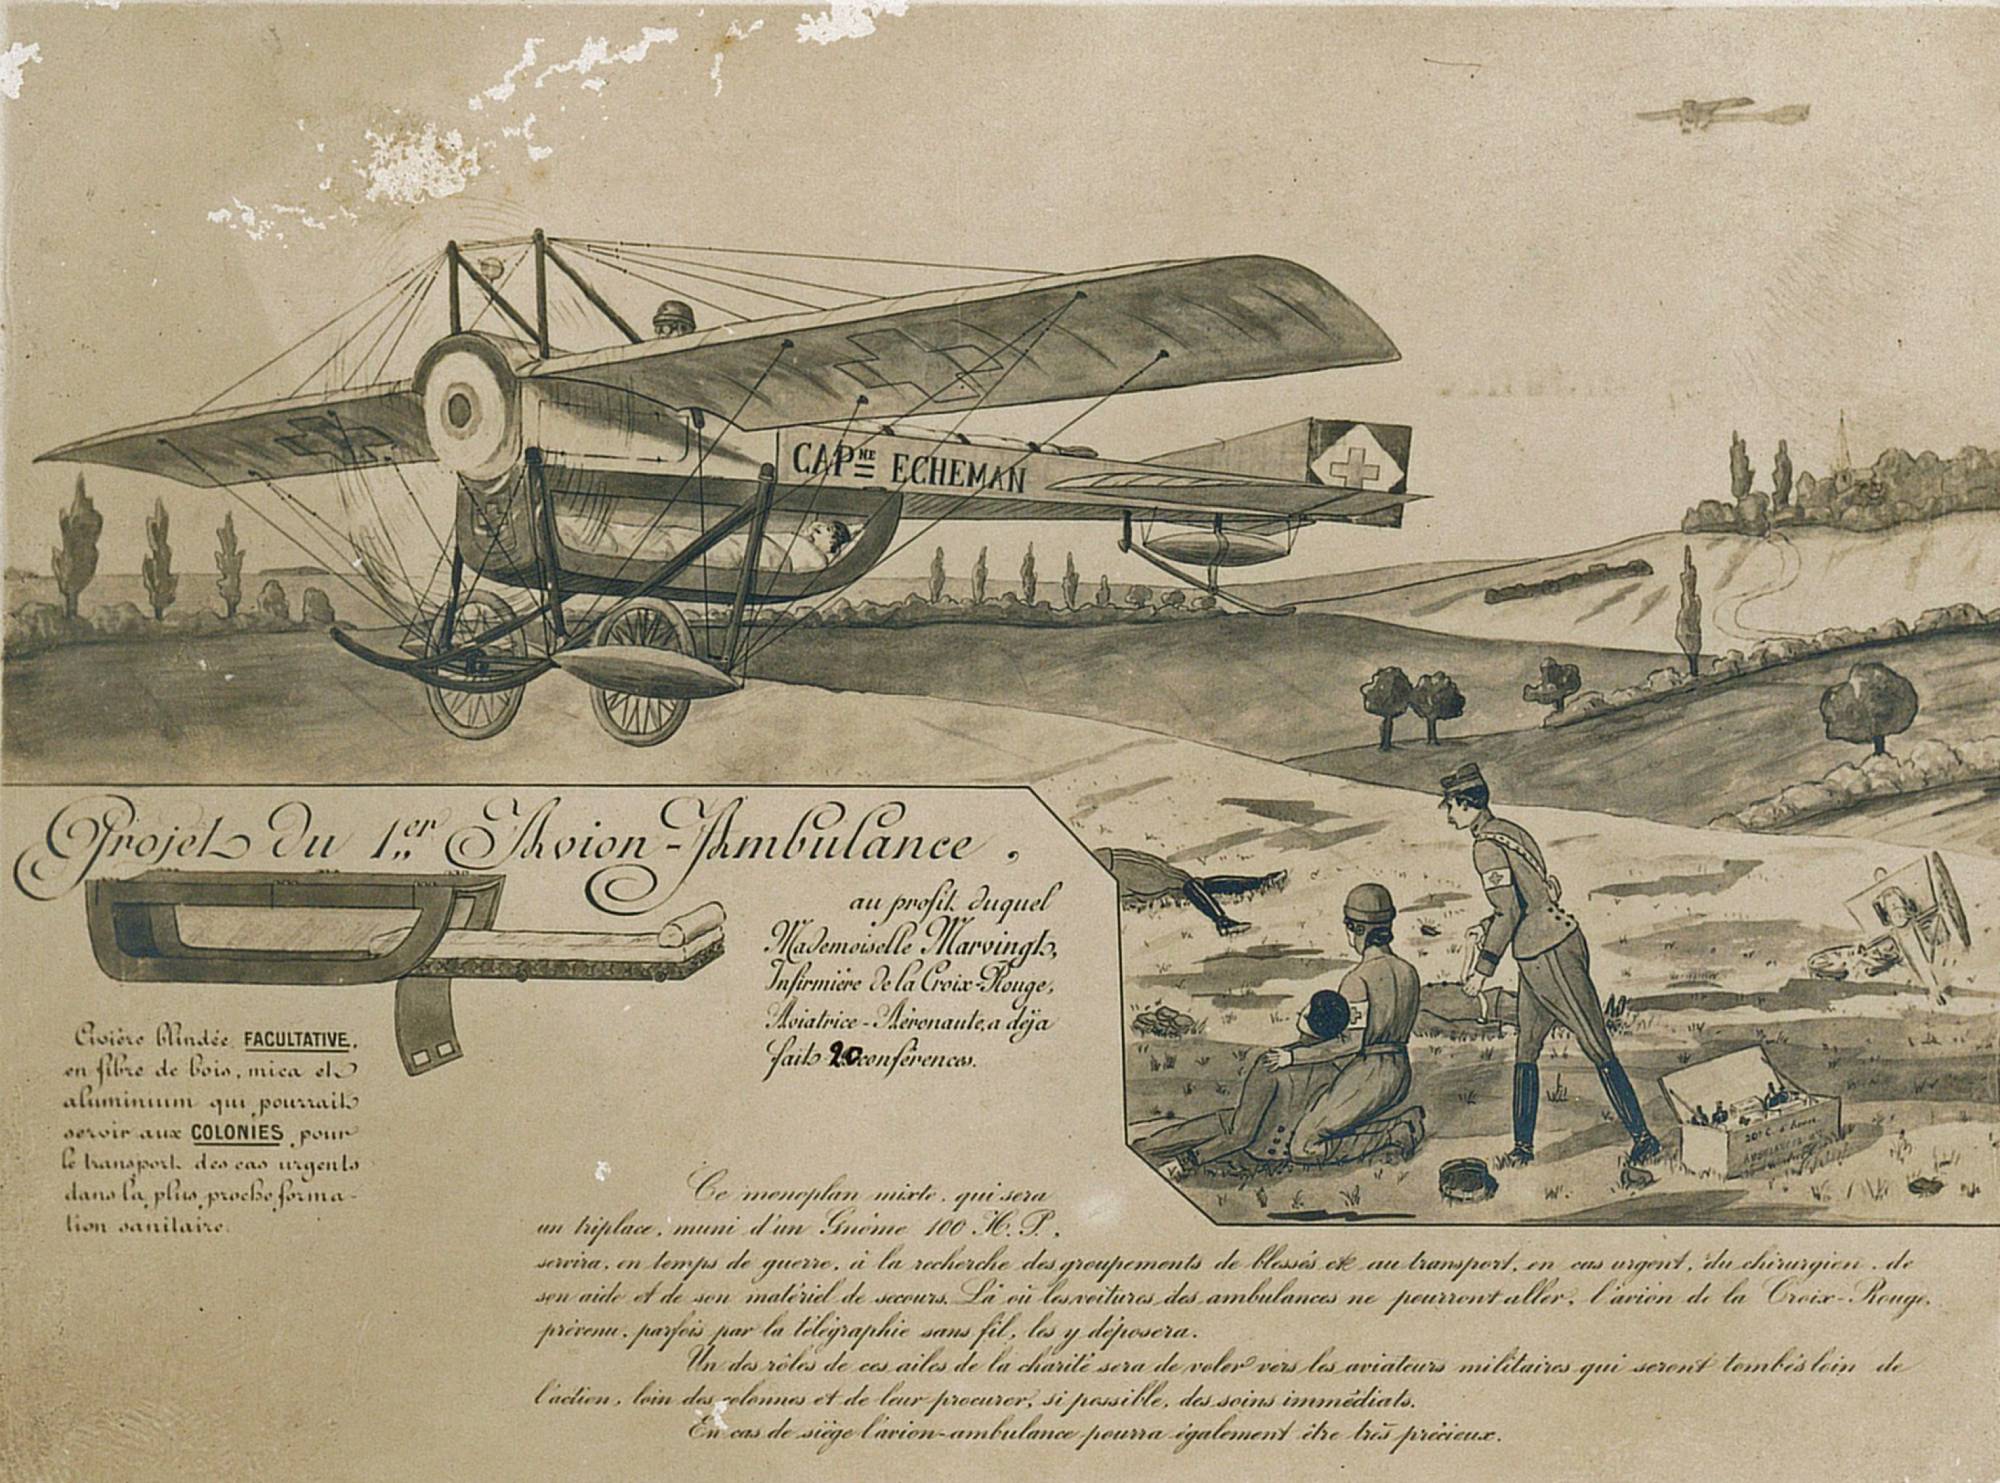 CAPNE ECHEMAN
Projet du 1er Avion-Ambulance,
au profit duquel
Mademoiselle Marvingt,
Infirmière de la Croix-Rouge,
Aviatrice-Aéronaute, a déjà
fait 20 conférences.
Civière blindée FACULTATIVE,
en fibre de bois, mica et
aluminium qui pourrait
servir aux COLONIES pour
le transport des cas urgents
dans la plus proche forma-
tion sanitaire.
Ce monoplan mixte, qui sera
un triplace, muni d'un Gnôme 100 H.P.,
servira, en temps de guerre, à la recherche des groupements de blessés et au transport, en cas urgent, du chirurgien, de
son aide et de son matériel de secours. Là où les voitures des ambulances ne pourront aller, l'avion de la Croix-Rouge,
prévenu, parfois par la télégraphie sans fil, les y déposera.
Un des rôles de ces ailes de la charité sera de voler vers les aviateurs militaires qui seront tombés loin de
l'action, loin des colonnes et de leur procurer, si possible, des soins immédiats.
En cas de siège l'avion-ambulance pourra également être très précieux.